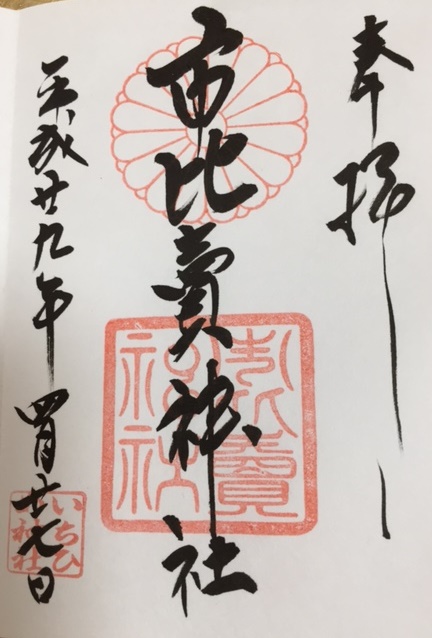 奉拝
市比賣神社
平成廿九年 四月十七日
市比賣神社
いちひ
神社